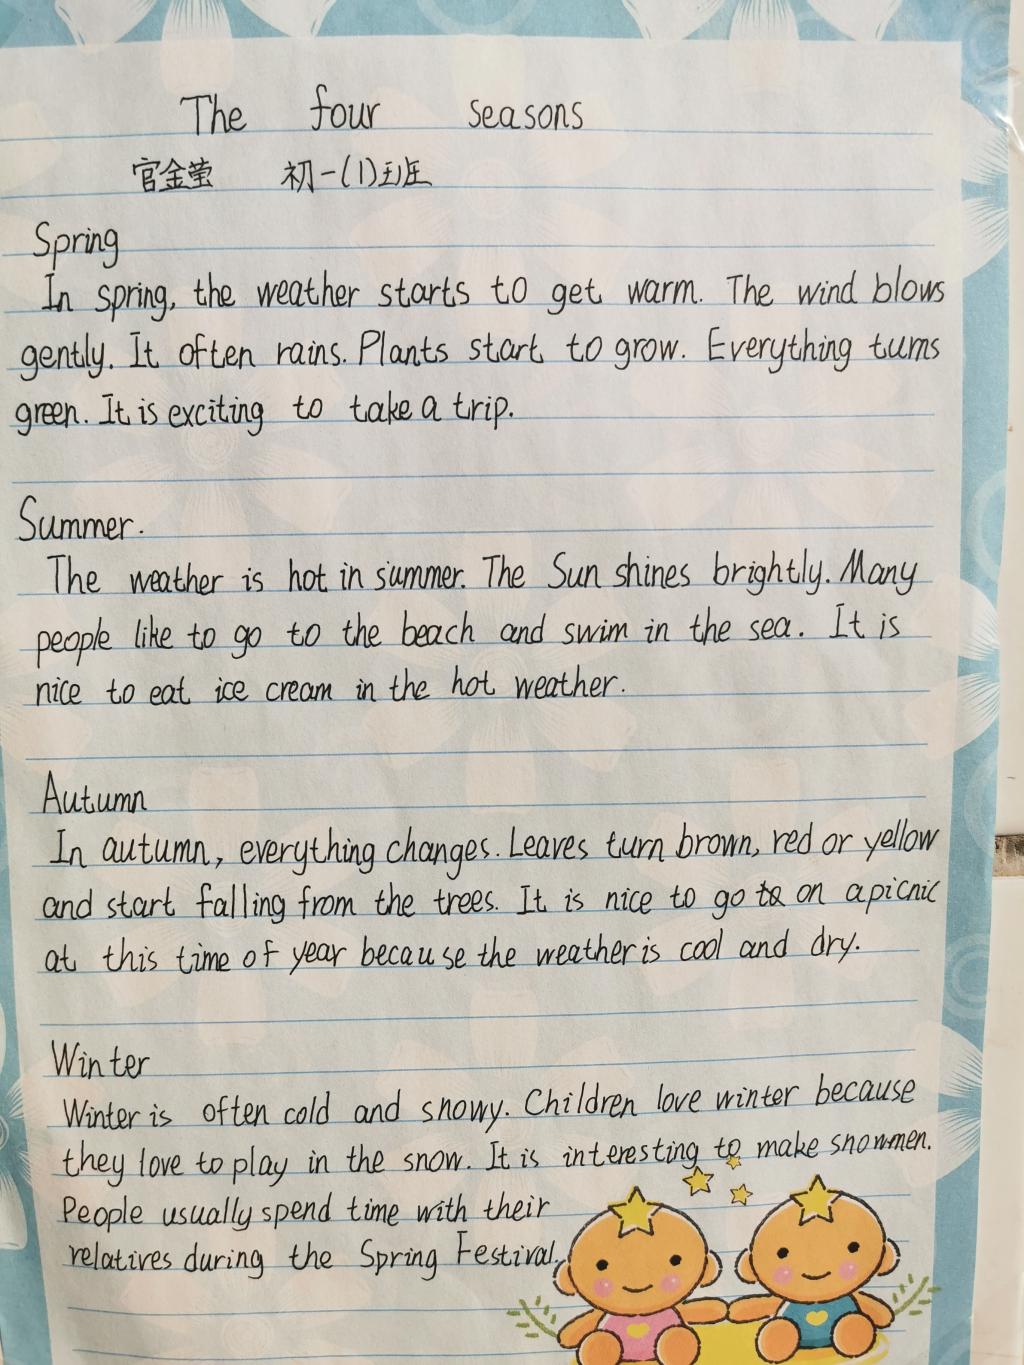 The four seasons
官金莹 初一(1)班
Spring
In spring, the weather starts to get warm. The wind blows
gently. It often rains. Plants start to grow. Everything turns
green. It is exciting to take a trip.
Summer.
The weather is hot in summer. The Sun shines brightly. Many
people like to go to the beach and swim in the sea. It is
nice to eat ice cream in the hot weather.
Autumn
In autumn, everything changes. Leaves turn brown, red or yellow
and start falling from the trees. It is nice to go on a picnic
at this time of year because the weather is cool and dry.
Winter
Winter is often cold and snowy. Children love winter because
they love to play in the snow. It is interesting to make snowmen.
People usually spend time with their
relatives during the Spring Festival.